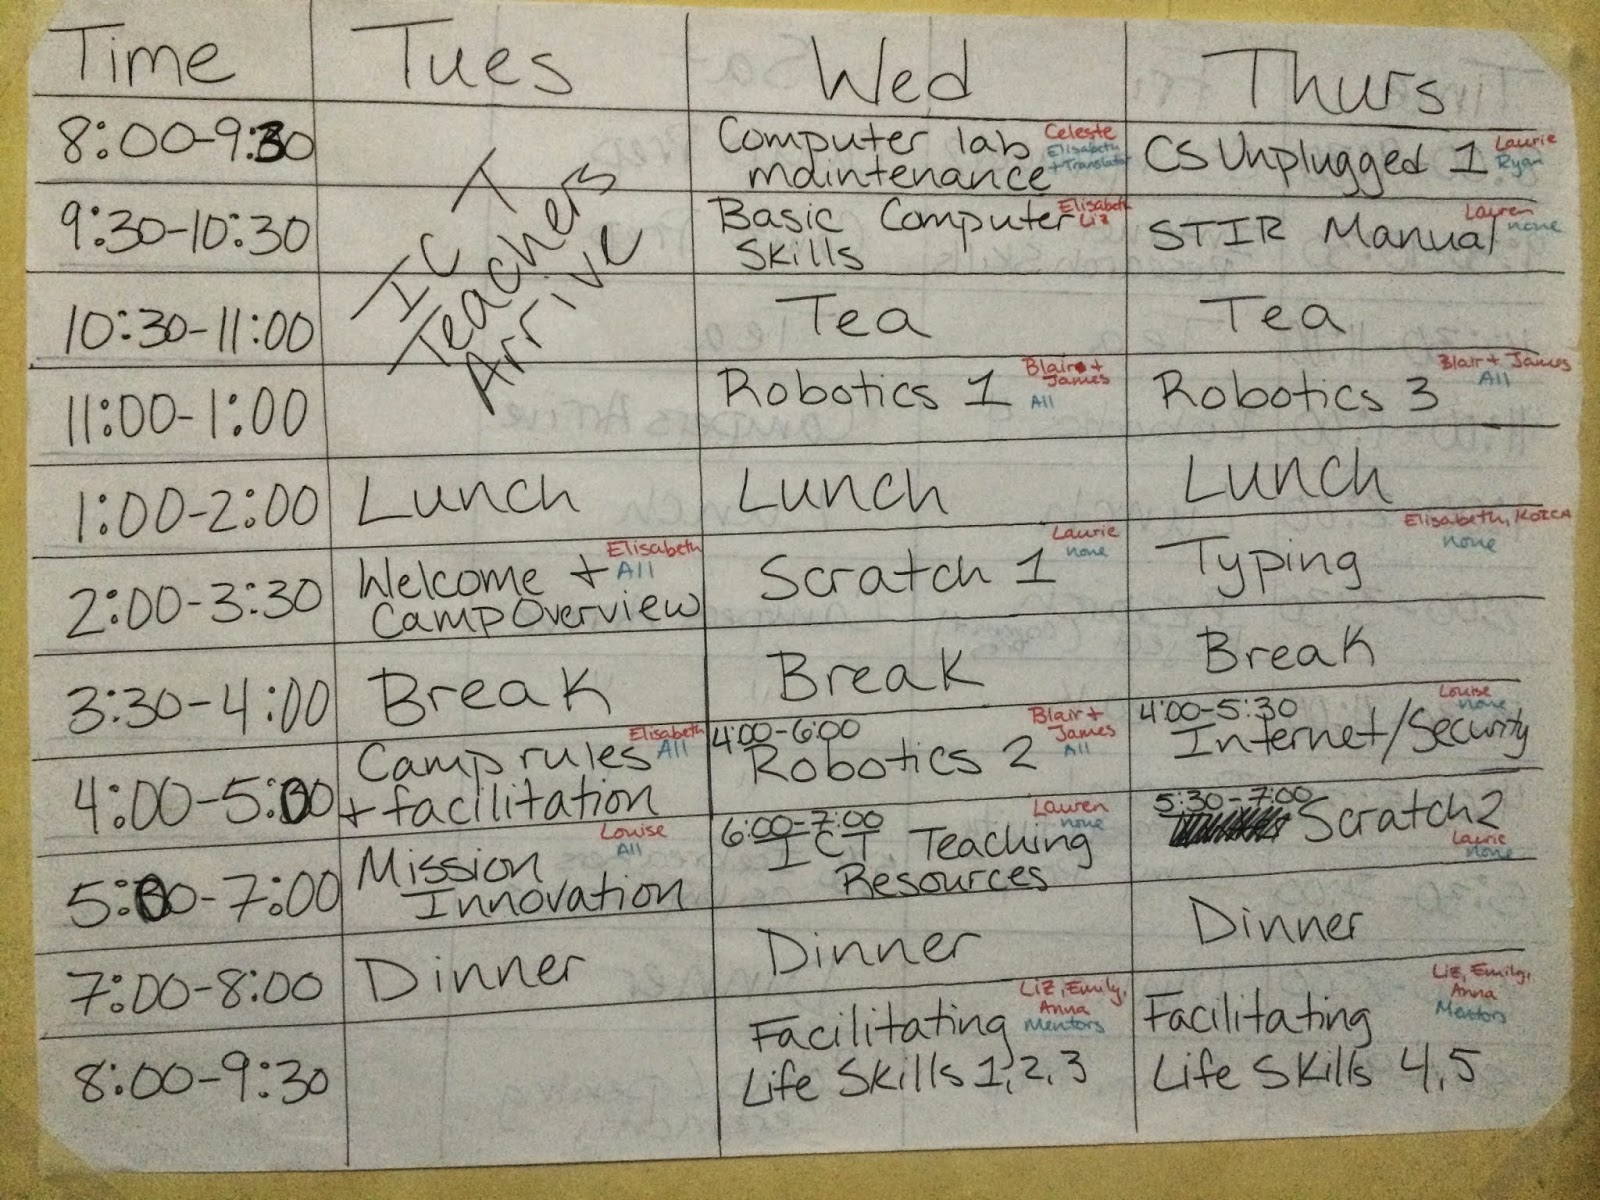 Time Tues Wed Thurs
8:00-9:30
Computer lab
maintenance
Celeste
Elisabeth
+Translator
CS Unplugged 1
Laurie
Ryan
ICT
Teachers
Arrive
9:30-10:30
Basic Computer
Skills
Elisabeth
Liz
STIR Manual
Lauren
none
10:30-11:00 Tea Tea
11:00-1:00
Robotics 1
Blair +
James
All
Robotics 3
Blair + James
All
1:00-2:00 Lunch Lunch Lunch
2:00-3:30
Welcome +
Camp Overview
Elisabeth
All
Scratch 1
Laurie
none
Typing
Elisabeth,
none
3:30-4:00 Break Break Break
4:00-5:00
Camp rules
+ facilitation
Elisabeth
All
4:00-6:00
Robotics 2
Blair +
James
All
4:00-5:30
Internet/Security
Louise
none
5:00-7:00
Mission
Innovation
Louise
All
6:00-7:00
ICT Teaching
Resources
Lauren
none
5:30-7:00
Scratch 2
Laurie
none
7:00-8:00 Dinner Dinner Dinner
8:00-9:30
Facilitating
Life Skills 1, 2, 3
Liz, Emily,
Anna
Mentors
Facilitating
Life Skills 4, 5
Liz, Emily,
Anna
Mentors